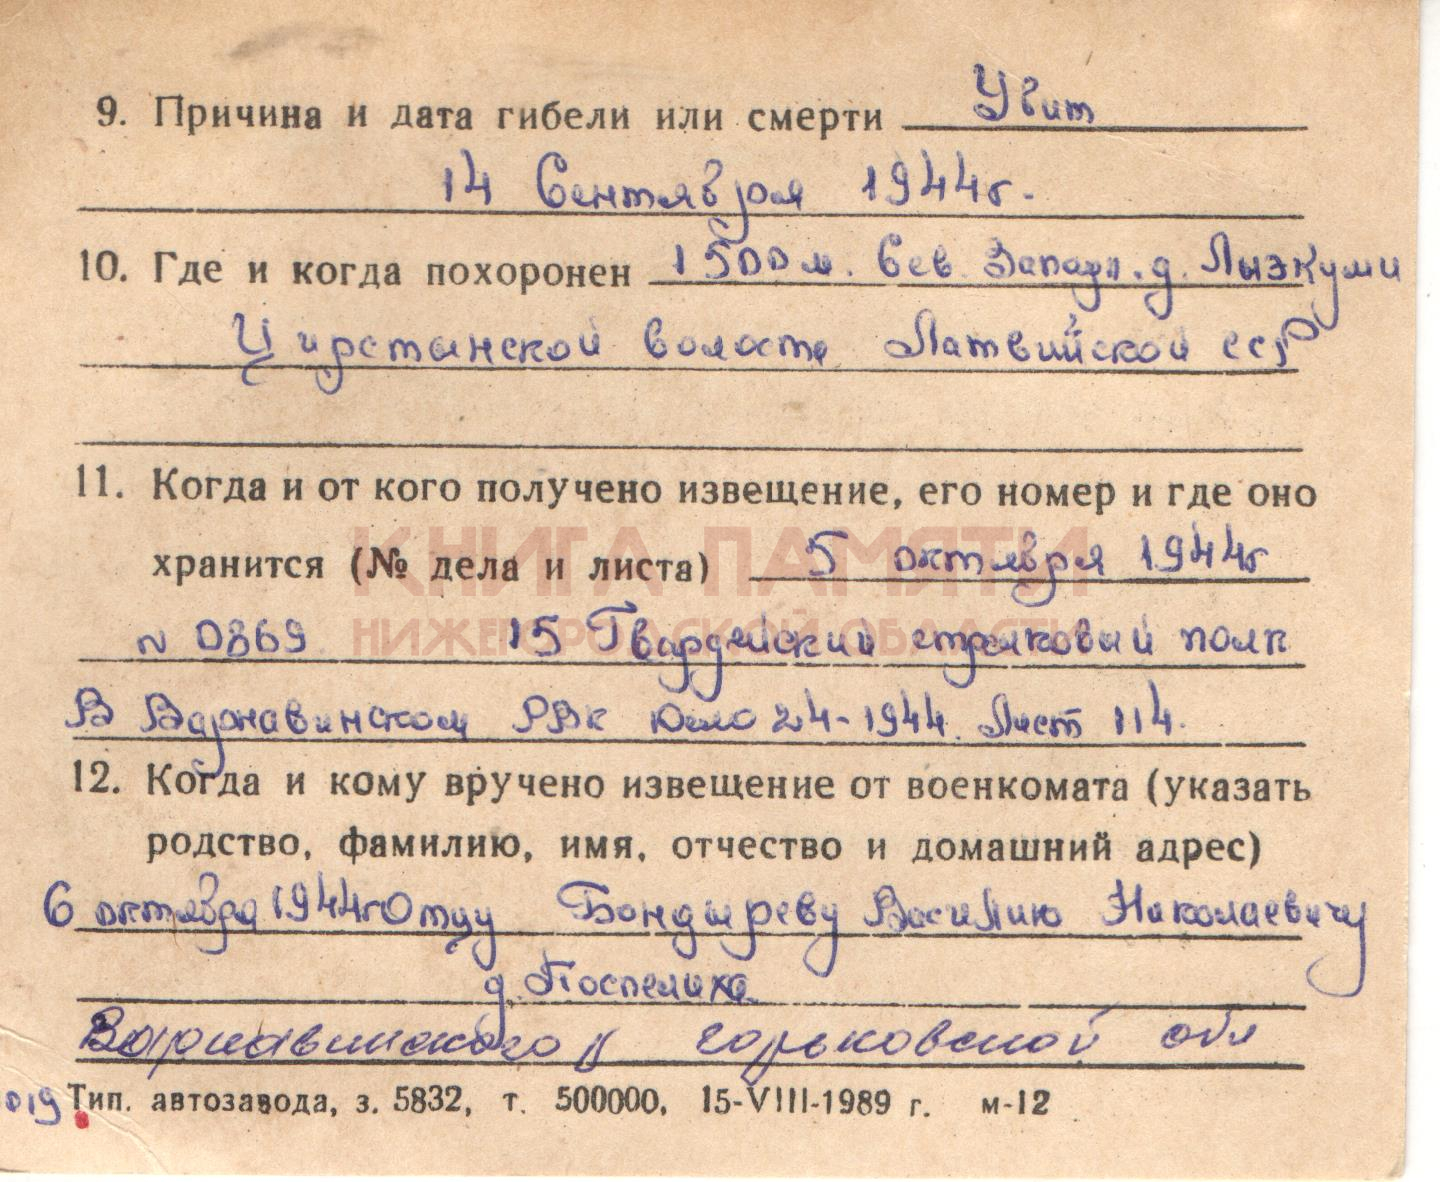 9. Причина и дата гибели или смерти Убит
14 Сентября 1944г.
10. Где и когда похоронен 1500 м. Сев. Запад. д. Лызкуми
Цирстынской волости Латвийской ССР
11. Когда и от кого получено извещение, его номер и где оно
КНИГА ПАМЯТИ
хранится (№ дела и листа) 5 октября 1944г
НИЖЕГОРОДСКОЙ ОБЛАСТИ
N 0869. 15 Гвардейский стрелковый полк
В Варнавинском РВК дело 24-1944. Лист 114.
12. Когда и кому вручено извещение от военкомата (указать
родство, фамилию, имя, отчество и домашний адрес)
6 октября 1944г Отцу Бондыреву Василию Николаевичу
д. Поспелиха
Варнавинского р горьковской обл
019 Тип. автозавода, з. 5832, т. 500000, 15-VIII-1989 г. м-12